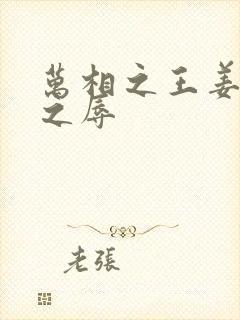 萬相之王姜
之辱
老張